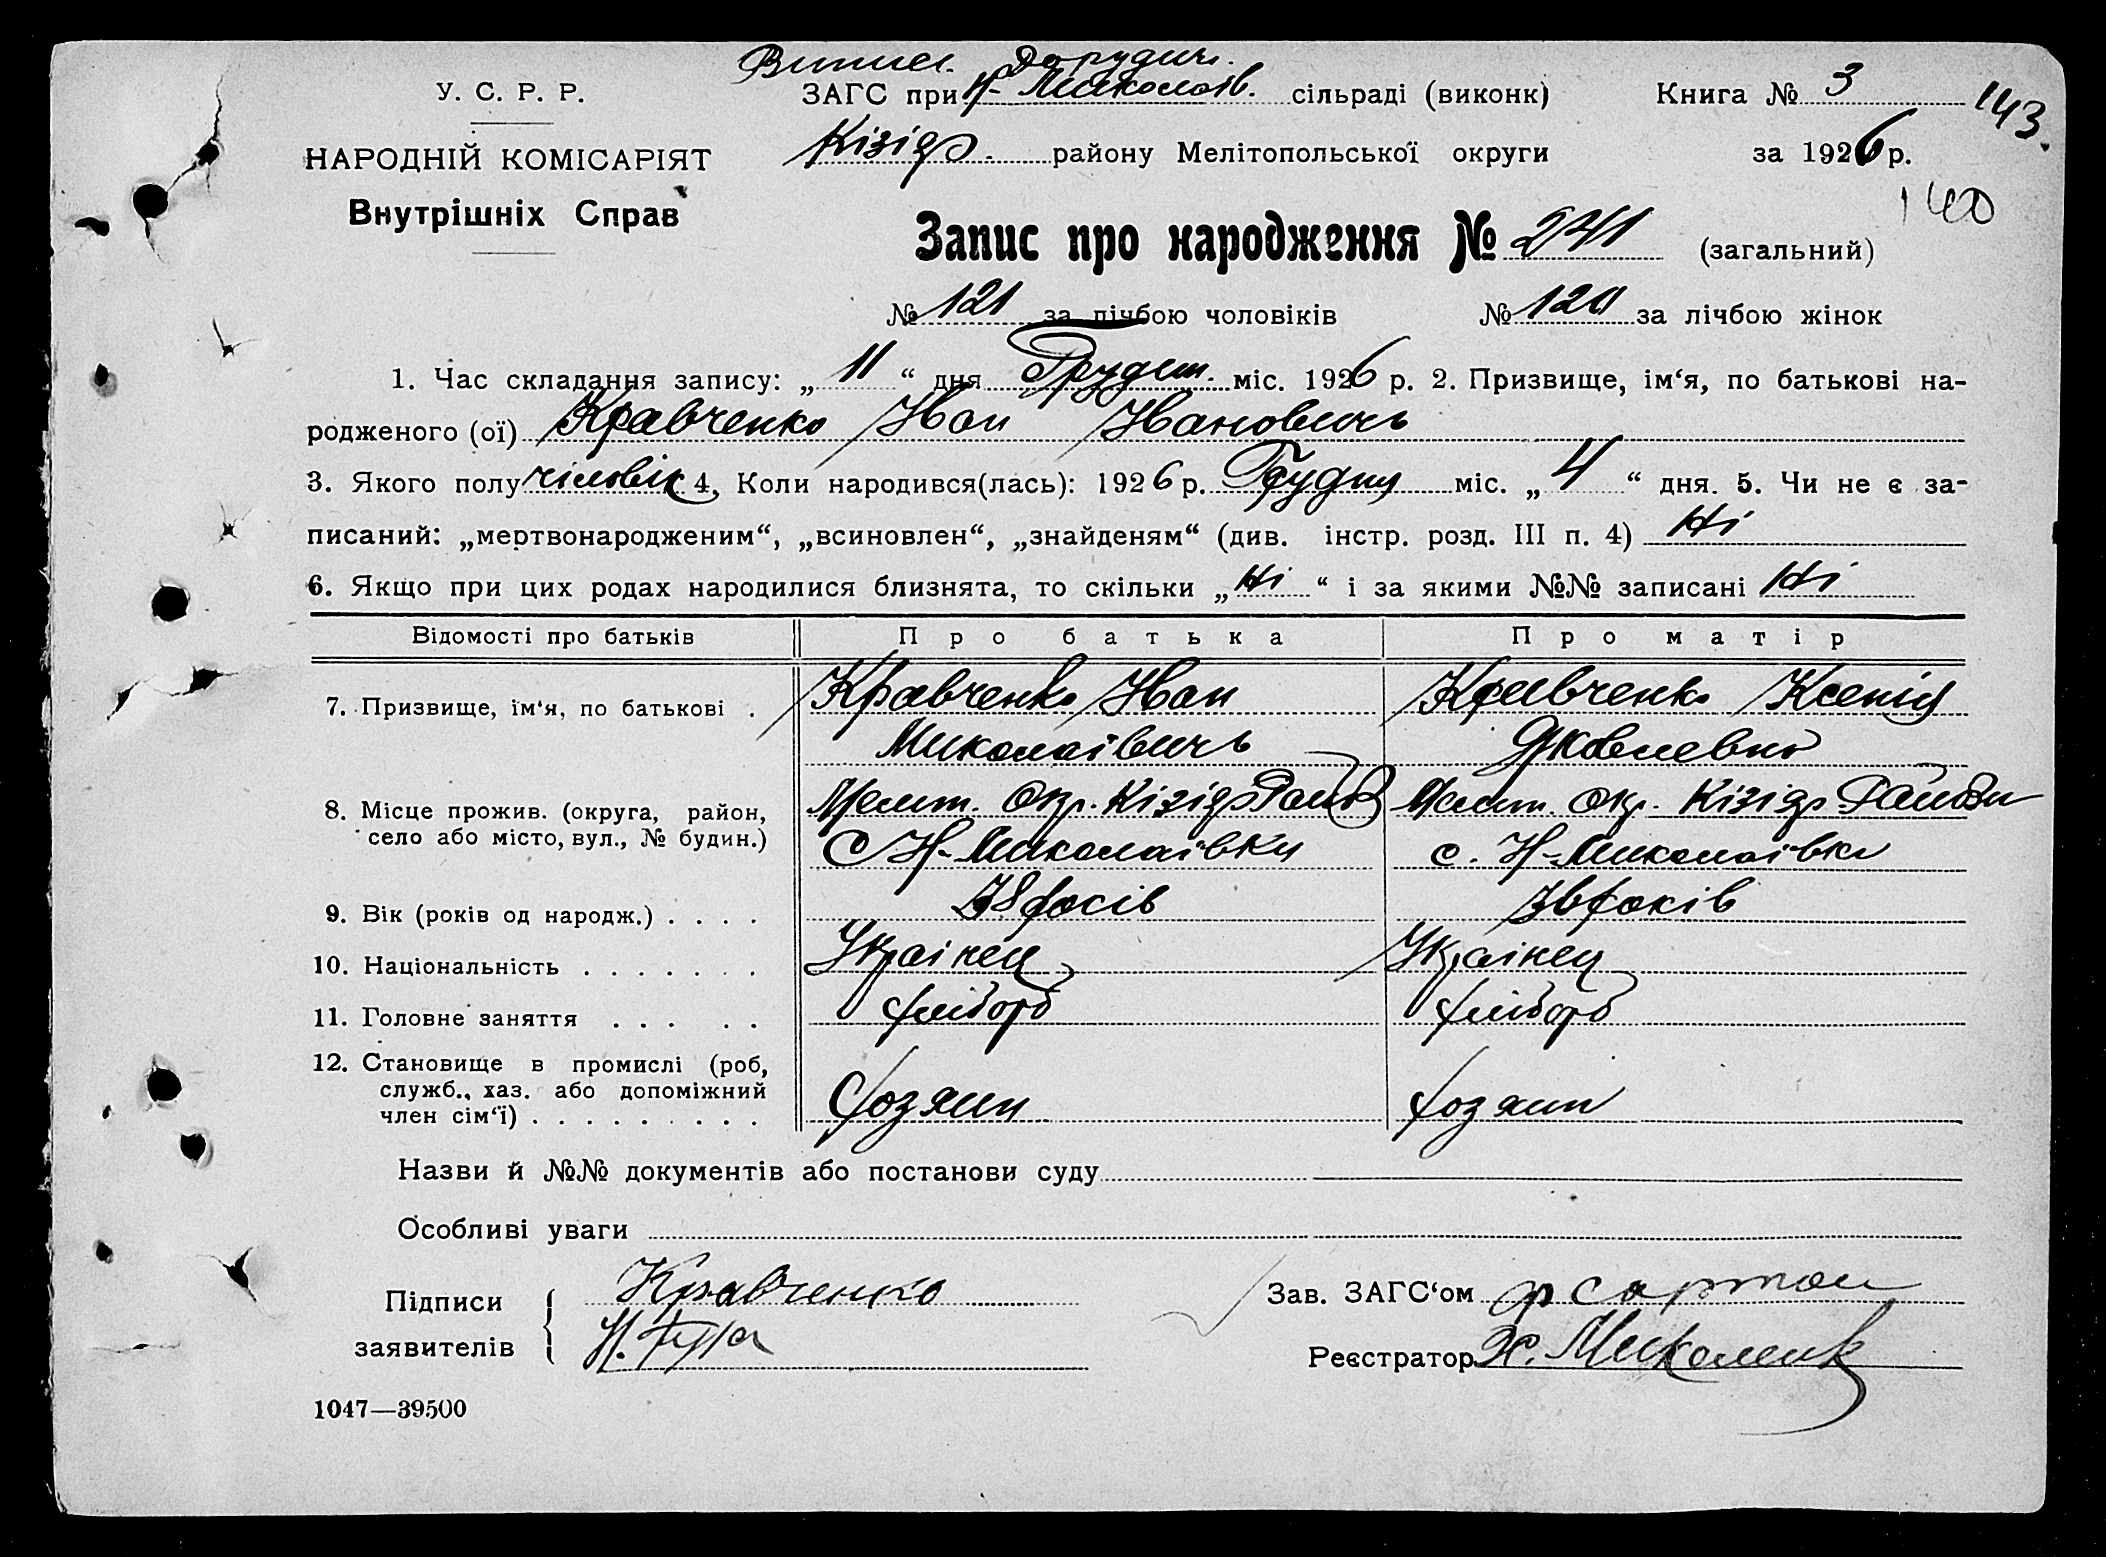 У. С. Р. Р.
НАРОДНІЙ КОМІСАРІЯТ
Внутрішніх Справ
ЗАГС при Н-Миколаїв. сільраді (виконк)
Кізіяр. району Мелітопольської округи
Книга № 3
143.
за 1926 р.
140
Запис про народження № 241 (загальний)
№ 121 за лічбою чоловіків № 120 за лічбою жінок
1. Час складання запису: „ 11 “ дня Грудня міс. 1926 р. 2. Призвище, ім‘я, по батькові на-
родженого (ої) Кравченко Иван Иванович
3. Якого полу чіловік 4. Коли народився(лась): 1926 р. Грудня міс. „ 4 “ дня. 5. Чи не є за-
писаний: „мертвонародженим“, „всиновлен“, „знайденям“ (див. інстр. розд. III п. 4) Ні
6. Якщо при цих родах народилися близнята, то скільки „ Ні “ і за якими №№ записані Ні
Відомості про батьків Про батька Про матір
7. Призвище, ім‘я, по батькові . Кравченко Иван Кравченко Ксенія
Миколаївичь Яковлевна
8. Місце прожив. (округа, район, Меліт. Окр. Кізіяр Меліт. Окр. Кізіяр
село або місто, вул., № будин.) с Н-Миколаївки с. Н-Миколаївки
9. Вік (років од народж.) . . . . 38 років років
10. Національність . . . . . . . Українец Українец
11. Головне заняття . . . . . хлібороб хлібороб
12. Становище в промислі (роб,
служб., хаз. або допоміжний
член сім‘ї) . . . . . . . . . хозяин хозяин
Назви й №№ документів або постанови суду
Особливі уваги
Підписи Кравченко
заявителів Н.
Зав. ЗАГС‘ом
Реєстратор Х. Миколенк
1047—39500